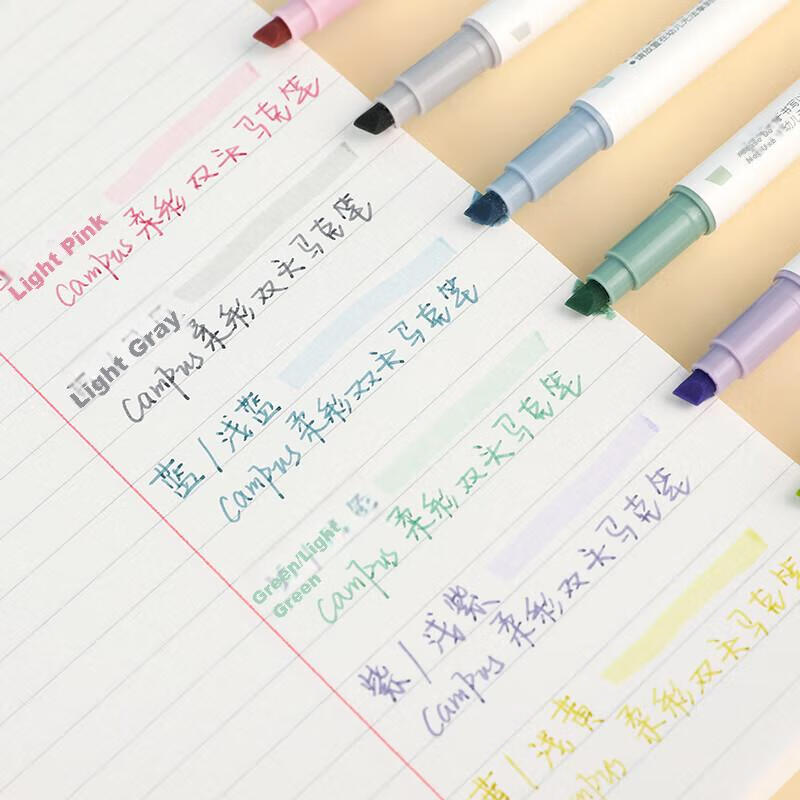 Light Pink
Campus 柔彩双头马克笔
Light Gray
Campus 柔彩双头马克笔
蓝/浅蓝
Campus 柔彩双头马克笔
Green/Light
Green
Campus 柔彩双头马克笔
紫/浅紫
Campus 柔彩双头马克笔
黄/浅黄
Campus 柔彩双头马克笔